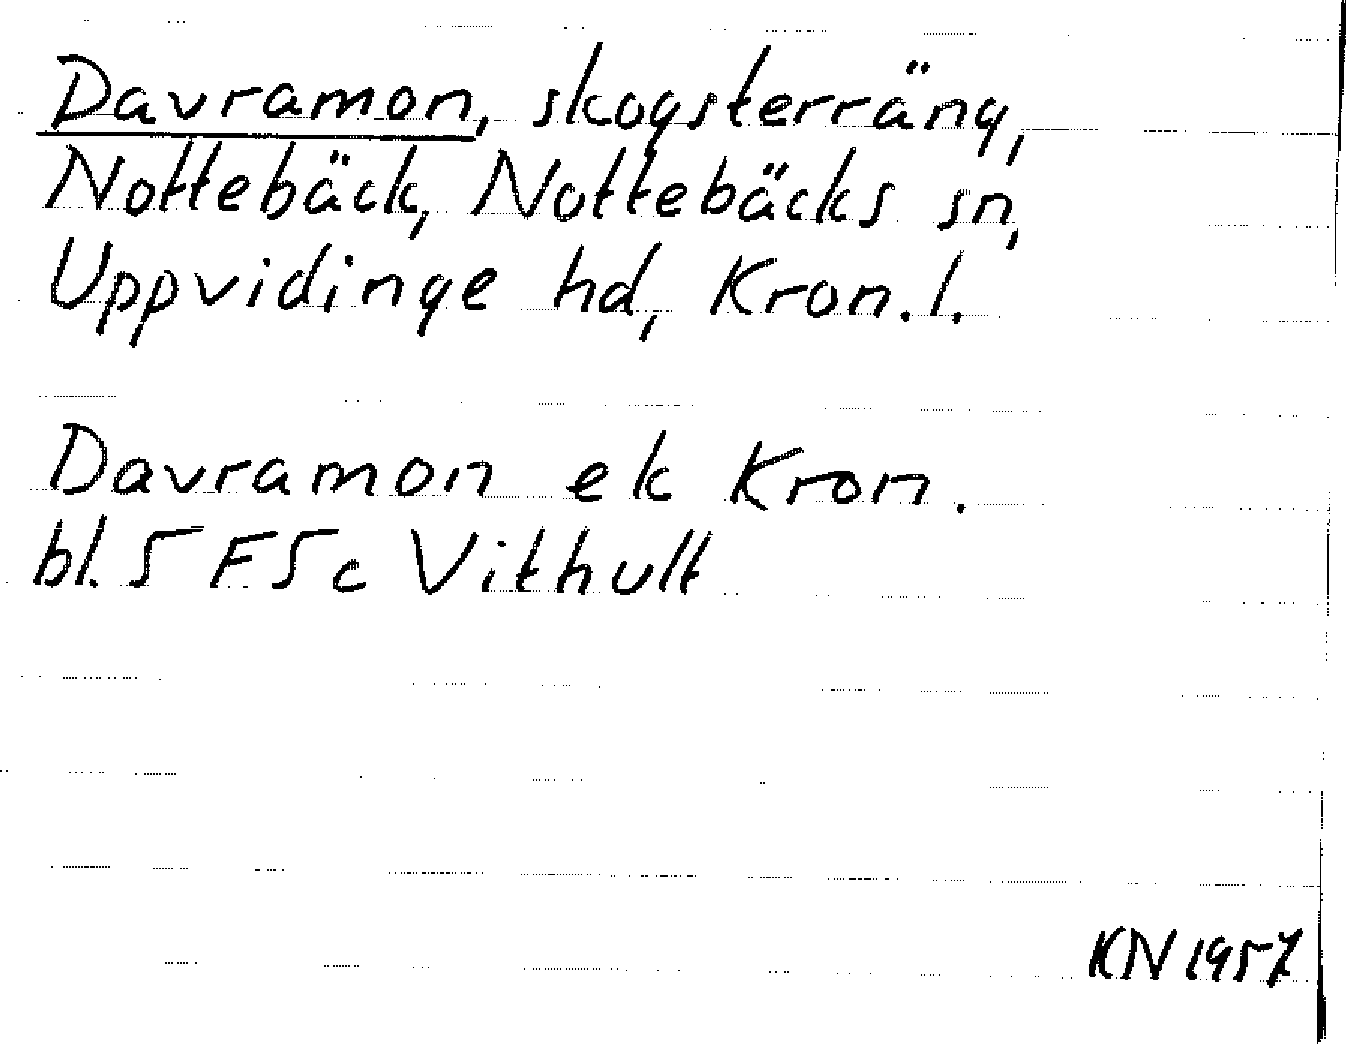 Davramon, skogsterräng,
Nottebäck, Nottebäcks sn,
Uppvidinge hd, Kron. l.
Davramon ek Kron.
bl. 5 F 5 c Vithult
KN 1957